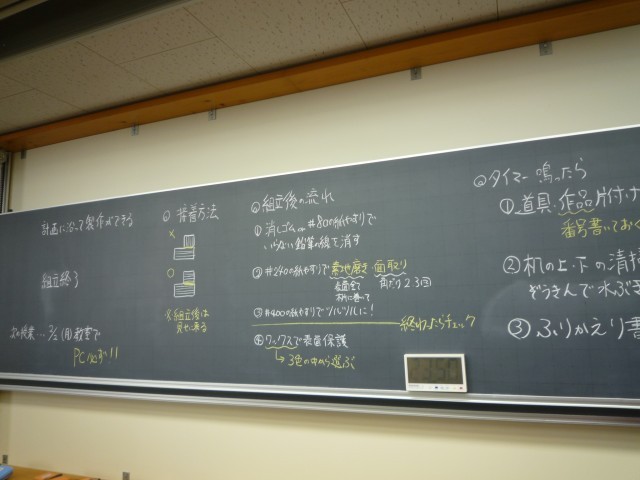 計画に沿って製作ができる
組立終了
次の授業… 3/2(月)教室で
PC必ず!!
◎ 接着方法
×
○
※組立後は
見せに来る
◎組立後の流れ
① 消しゴム or #80の紙やすりで
いらない鉛筆の線を消す
② #240の紙やすりで素地磨き・面取り
表面全て
木材に巻いて
角だけ 2、3回
③ #400の紙やすりでツルツルに!
終わったらチェック
④ ワックスで表面保護
→3色の中から選ぶ
◎タイマー鳴ったら
① 道具・作品片付け
番号書いておく
② 机の上・下の清掃
ぞうきんで水ぶき
③ ふりかえり書